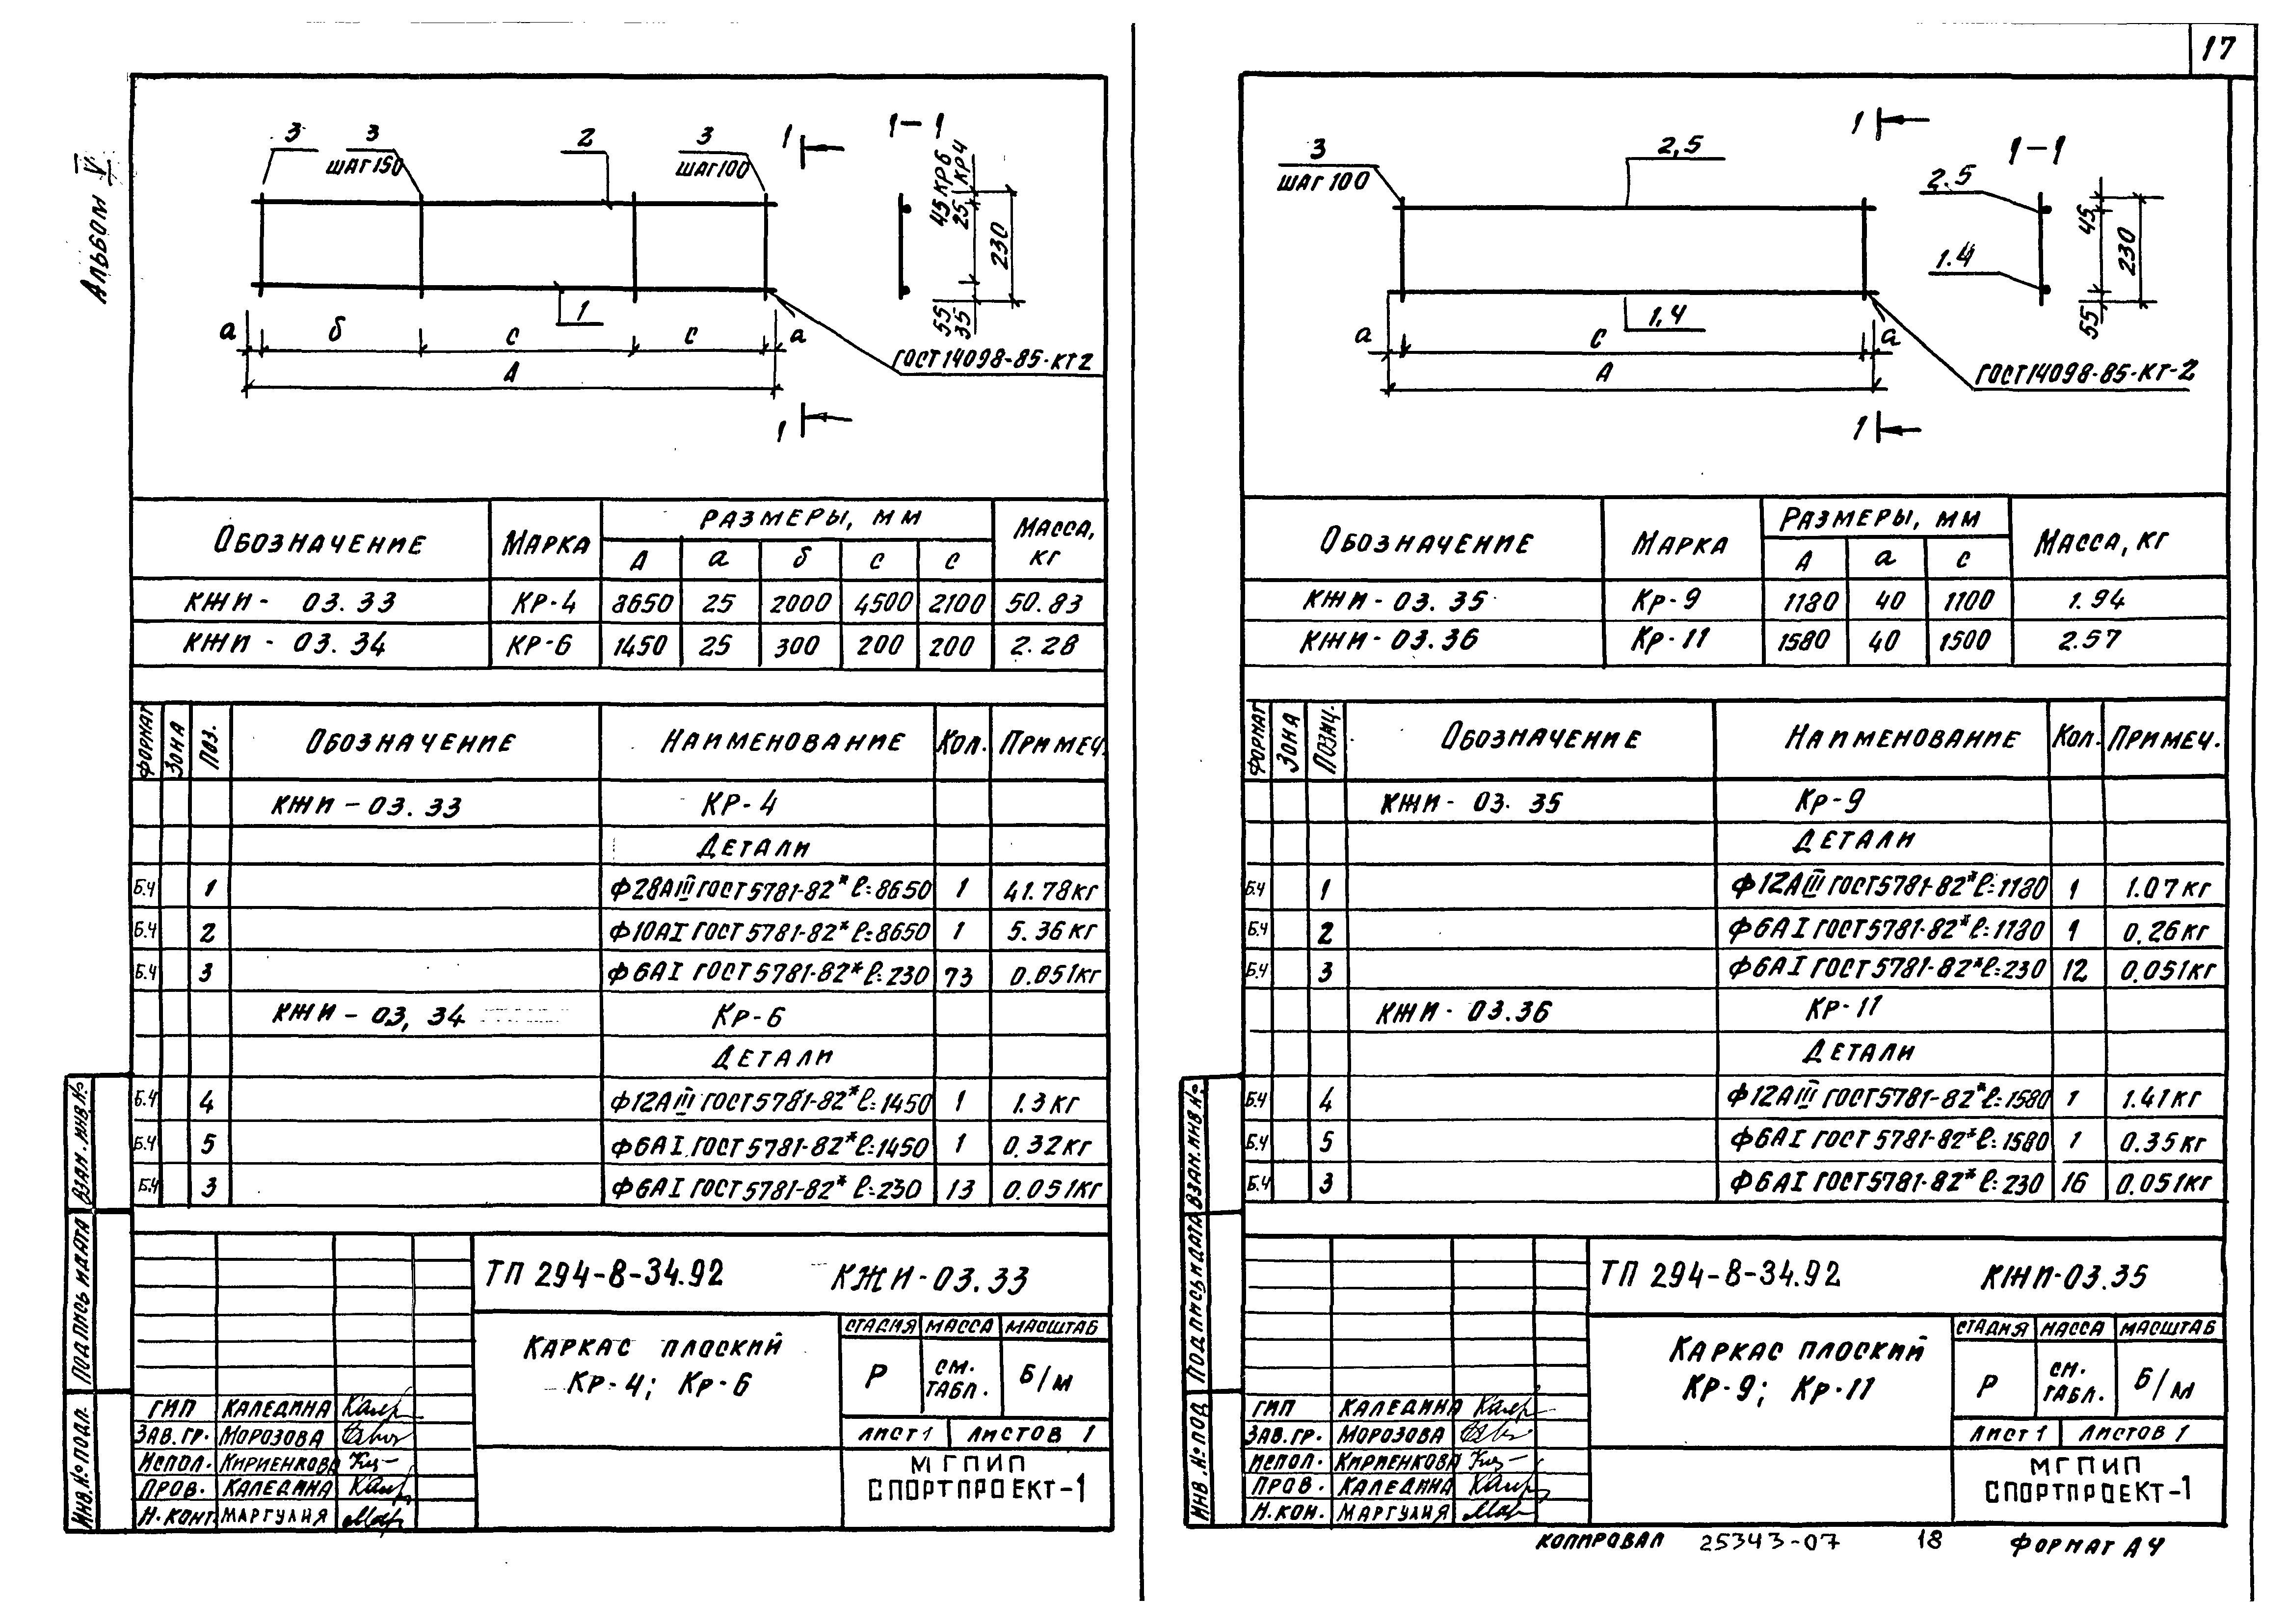 17
Альбом V
3 3 2 3 1 1-1
шаг 150 шаг 100
45 Кр6
25 Кр4
230
55
35
1
а б с с а
А
ГОСТ 14098-85-КТ2
1
Обозначение Марка Размеры, мм Масса, кг
А а б с с
КЖИ- 03.33 Кр-4 8650 25 2000 4500 2100 50.83
КЖИ- 03.34 Кр-6 1450 25 300 200 200 2.28
Формат Зона Поз. Обозначение Наименование Кол. Примеч.
КЖИ-03.33 Кр-4
Детали
Б.Ч 1 Ф28АIII ГОСТ 5781-82* ℓ=8650 1 41.78кг
Б.Ч 2 Ф10АI ГОСТ 5781-82* ℓ=8650 1 5.36кг
Б.Ч 3 Ф6АI ГОСТ 5781-82* ℓ=230 73 0.051кг
КЖИ-03,34 Кр-6
Детали
Б.Ч 4 Ф12АIII ГОСТ 5781-82* ℓ=1450 1 1.3кг
Б.Ч 5 Ф6АI ГОСТ 5781-82* ℓ=1450 1 0.32кг
Б.Ч 3 Ф6АI ГОСТ 5781-82* ℓ=230 13 0.051кг
ТП 294-8-34.92 КЖИ-03.33
Каркас плоский
Кр-4; Кр-6
Стадия Масса Масштаб
Р см. табл. Б/м
Лист 1 Листов 1
МГПИП
Спортпроект-1
ГИП Каледина
Зав.гр. Морозова
Испол. Кириенкова
Пров. Каледина
Н.конт. Маргулия
Взам.инв.№
Подпись и дата
Инв.№ подл.
3 2,5 1 1-1
шаг 100
2.5
1.4
45
230
55
1,4
а с а
А
ГОСТ 14098-85-КТ-2
1
Обозначение Марка Размеры, мм Масса, кг
А а с
КЖИ-03.35 Кр-9 1180 40 1100 1.94
КЖИ-03.36 Кр-11 1580 40 1500 2.57
Формат Зона Позиц. Обозначение Наименование Кол. Примеч.
КЖИ- 03. 35 Кр-9
Детали
Б.Ч 1 Ф12АIII ГОСТ 5781-82* ℓ=1180 1 1.07кг
Б.Ч 2 Ф6АI ГОСТ 5781-82* ℓ=1180 1 0.26кг
Б.Ч 3 Ф6АI ГОСТ 5781-82* ℓ=230 12 0.051кг
КЖИ- 03.36 Кр-11
Детали
Б.Ч 4 Ф12АIII ГОСТ 5781-82* ℓ=1580 1 1.41кг
Б.Ч 5 Ф6АI ГОСТ 5781-82* ℓ=1580 1 0.35кг
Б.Ч 3 Ф6АI ГОСТ 5781-82* ℓ=230 16 0.051кг
ТП 294-8-34.92 КЖИ-03.35
Каркас плоский
Кр-9; Кр-11
Стадия Масса Масштаб
Р см. табл. Б/м
Лист 1 Листов 1
МГПИП
Спортпроект-1
ГИП Каледина
Зав.гр. Морозова
Испол. Кириенкова
Пров. Каледина
Н.кон. Маргулия
Взам.инв №
Подпись и дата
Инв.№ под
Копировал 25343-07 18 Формат А4